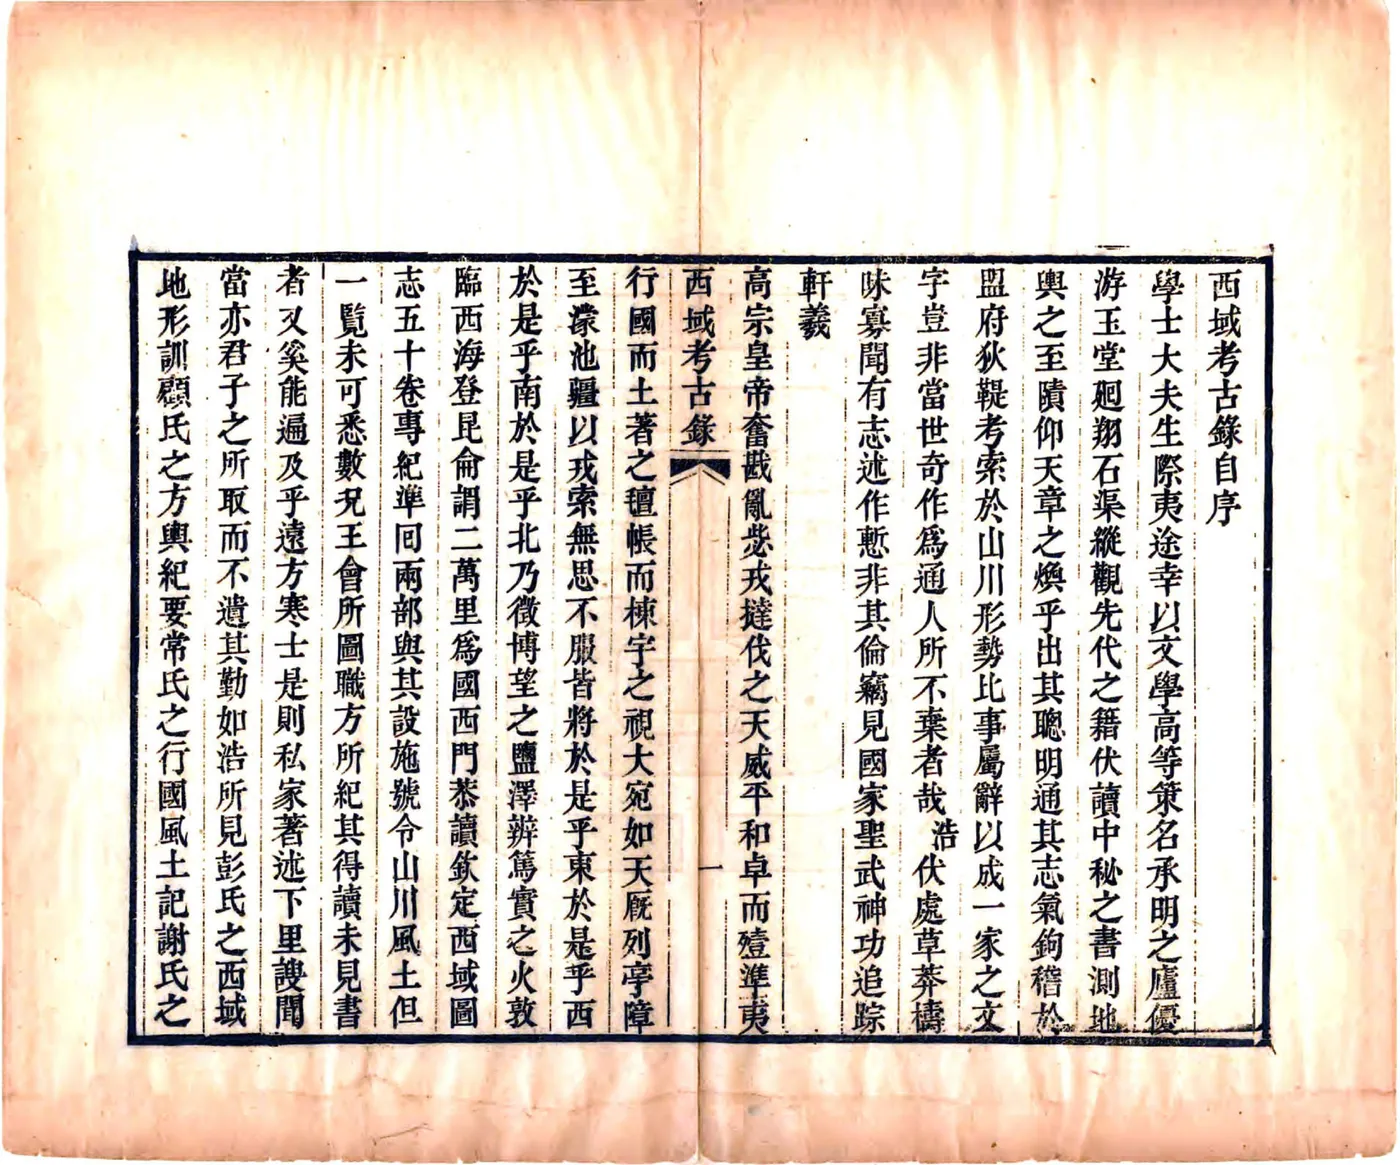 西域考古錄自序
學士大夫生際夷途幸以文學高等策名承明之廬優
游玉堂廻翔石渠縱觀先代之籍伏讀中秘之書測地
輿之至賾仰天章之煥乎出其聰明通其志氣鉤稽於
盟府狄鞮考索於山川形勢比事屬辭以成一家之文
字豈非當世奇作爲通人所不棄者哉浩伏處草莽檮
昧寡聞有志述作慙非其倫竊見國家聖武神功追踪
軒羲
高宗皇帝奮戡亂毖戎撻伐之天威平和卓而殪準夷
西域考古錄
一
行國而土著之氊帳而棟宇之視大宛如天厩列亭障
至濛池疆以戎索無思不服皆將於是乎東於是乎西
於是乎南於是乎北乃徵博望之鹽澤辨篤實之火敦
臨西海登昆侖謂二萬里爲國西門恭讀欽定西域圖
志五十卷專紀準囘兩部與其設施號令山川風土但
一覽未可悉數況王會所圖職方所紀其得讀未見書
者又奚能遍及乎遠方寒士是則私家著述下里謏聞
當亦君子之所取而不遺其勤如浩所見彭氏之西域
地形訓顧氏之方輿紀要常氏之行國風土記謝氏之